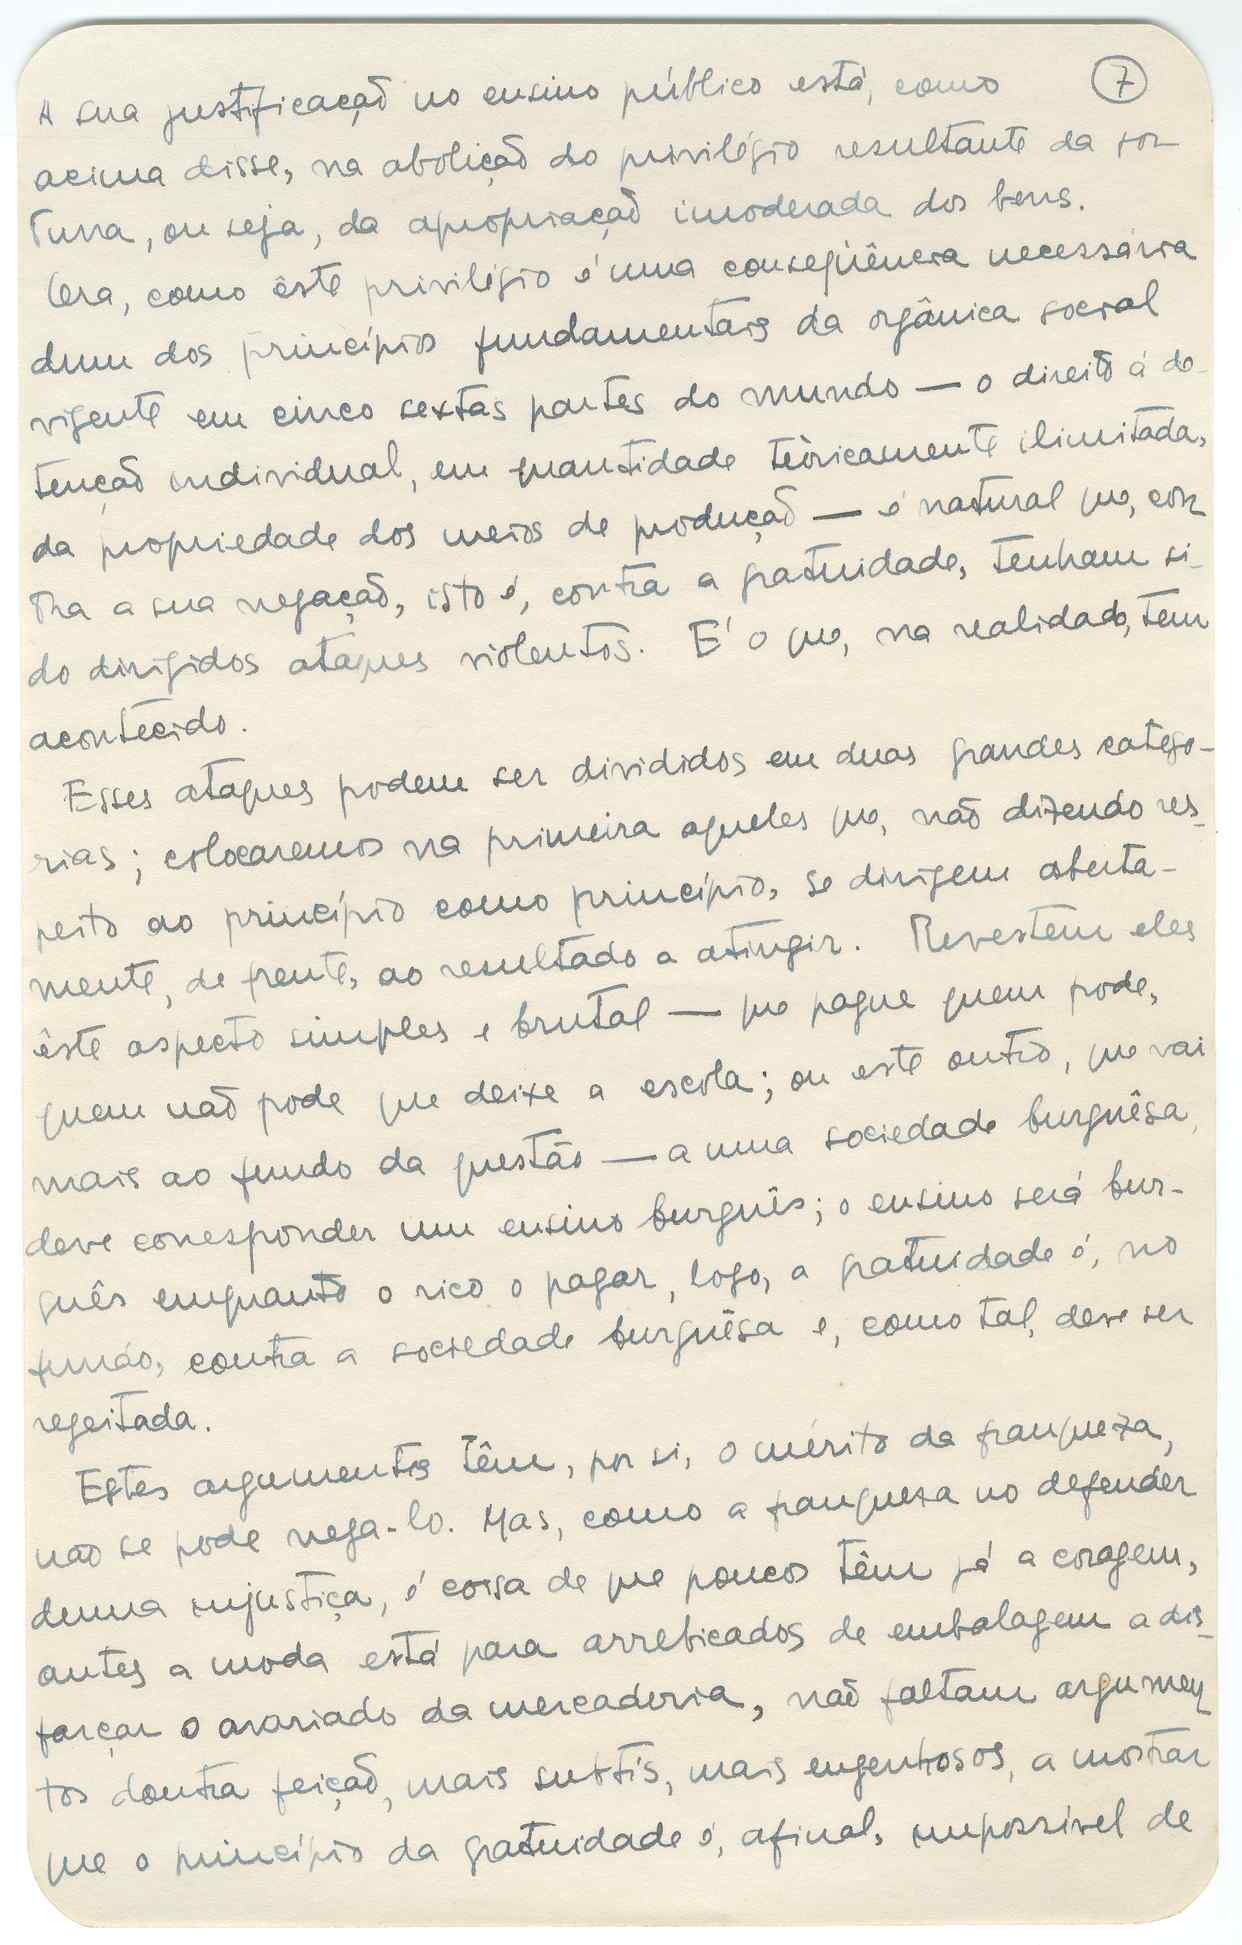 A sua justificação no ensino público está, como
7
acima disse, na abolição do privilégio resultante da for-
tuna, ou seja, da apropriação imoderada dos bens.
Ora, como êste privilégio é uma conseqüência necessária
dum dos princípios fundamentais da orgânica social
vigente em cinco sextas partes do mundo — o direito á de-
tenção individual, em quantidade teòricamente ilimitada,
da propriedade dos meios de produção — é natural que, con-
tra a sua negação, isto é, contra a gratuidade, tenham si-
do dirigidos ataques violentos. E' o que, na realidade, tem
acontecido.
Esses ataques podem ser divididos em duas grandes catego-
rias; colocaremos na primeira aqueles que, não dizendo res-
peito ao princípio como princípio, se dirigem aberta-
mente, de frente, ao resultado a atingir. Revestem eles
êste aspecto simples e brutal — que pague quem pode,
quem não pode que deixe a escola; ou este outro, que vai
mais ao fundo da questão — a uma sociedade burguêsa,
deve corresponder um ensino burguês; o ensino será bur-
guês enquanto o rico o pagar, logo, a gratuidade é, no
fundo, contra a sociedade burguêsa e, como tal, deve ser
regeitada.
Estes argumentos têm, por si, o mérito da franqueza,
não se pode nega-lo. Mas, como a franqueza no defender
duma injustiça, é coisa de que poucos têm já a coragem,
antes a moda está para arrebicados de embalagem a dis-
farçar o avariado da mercadoria, não faltam argumen
tos doutra feição, mais subtis, mais engenhosos, a mostrar
que o princípio da gratuidade é, afinal, impossível de